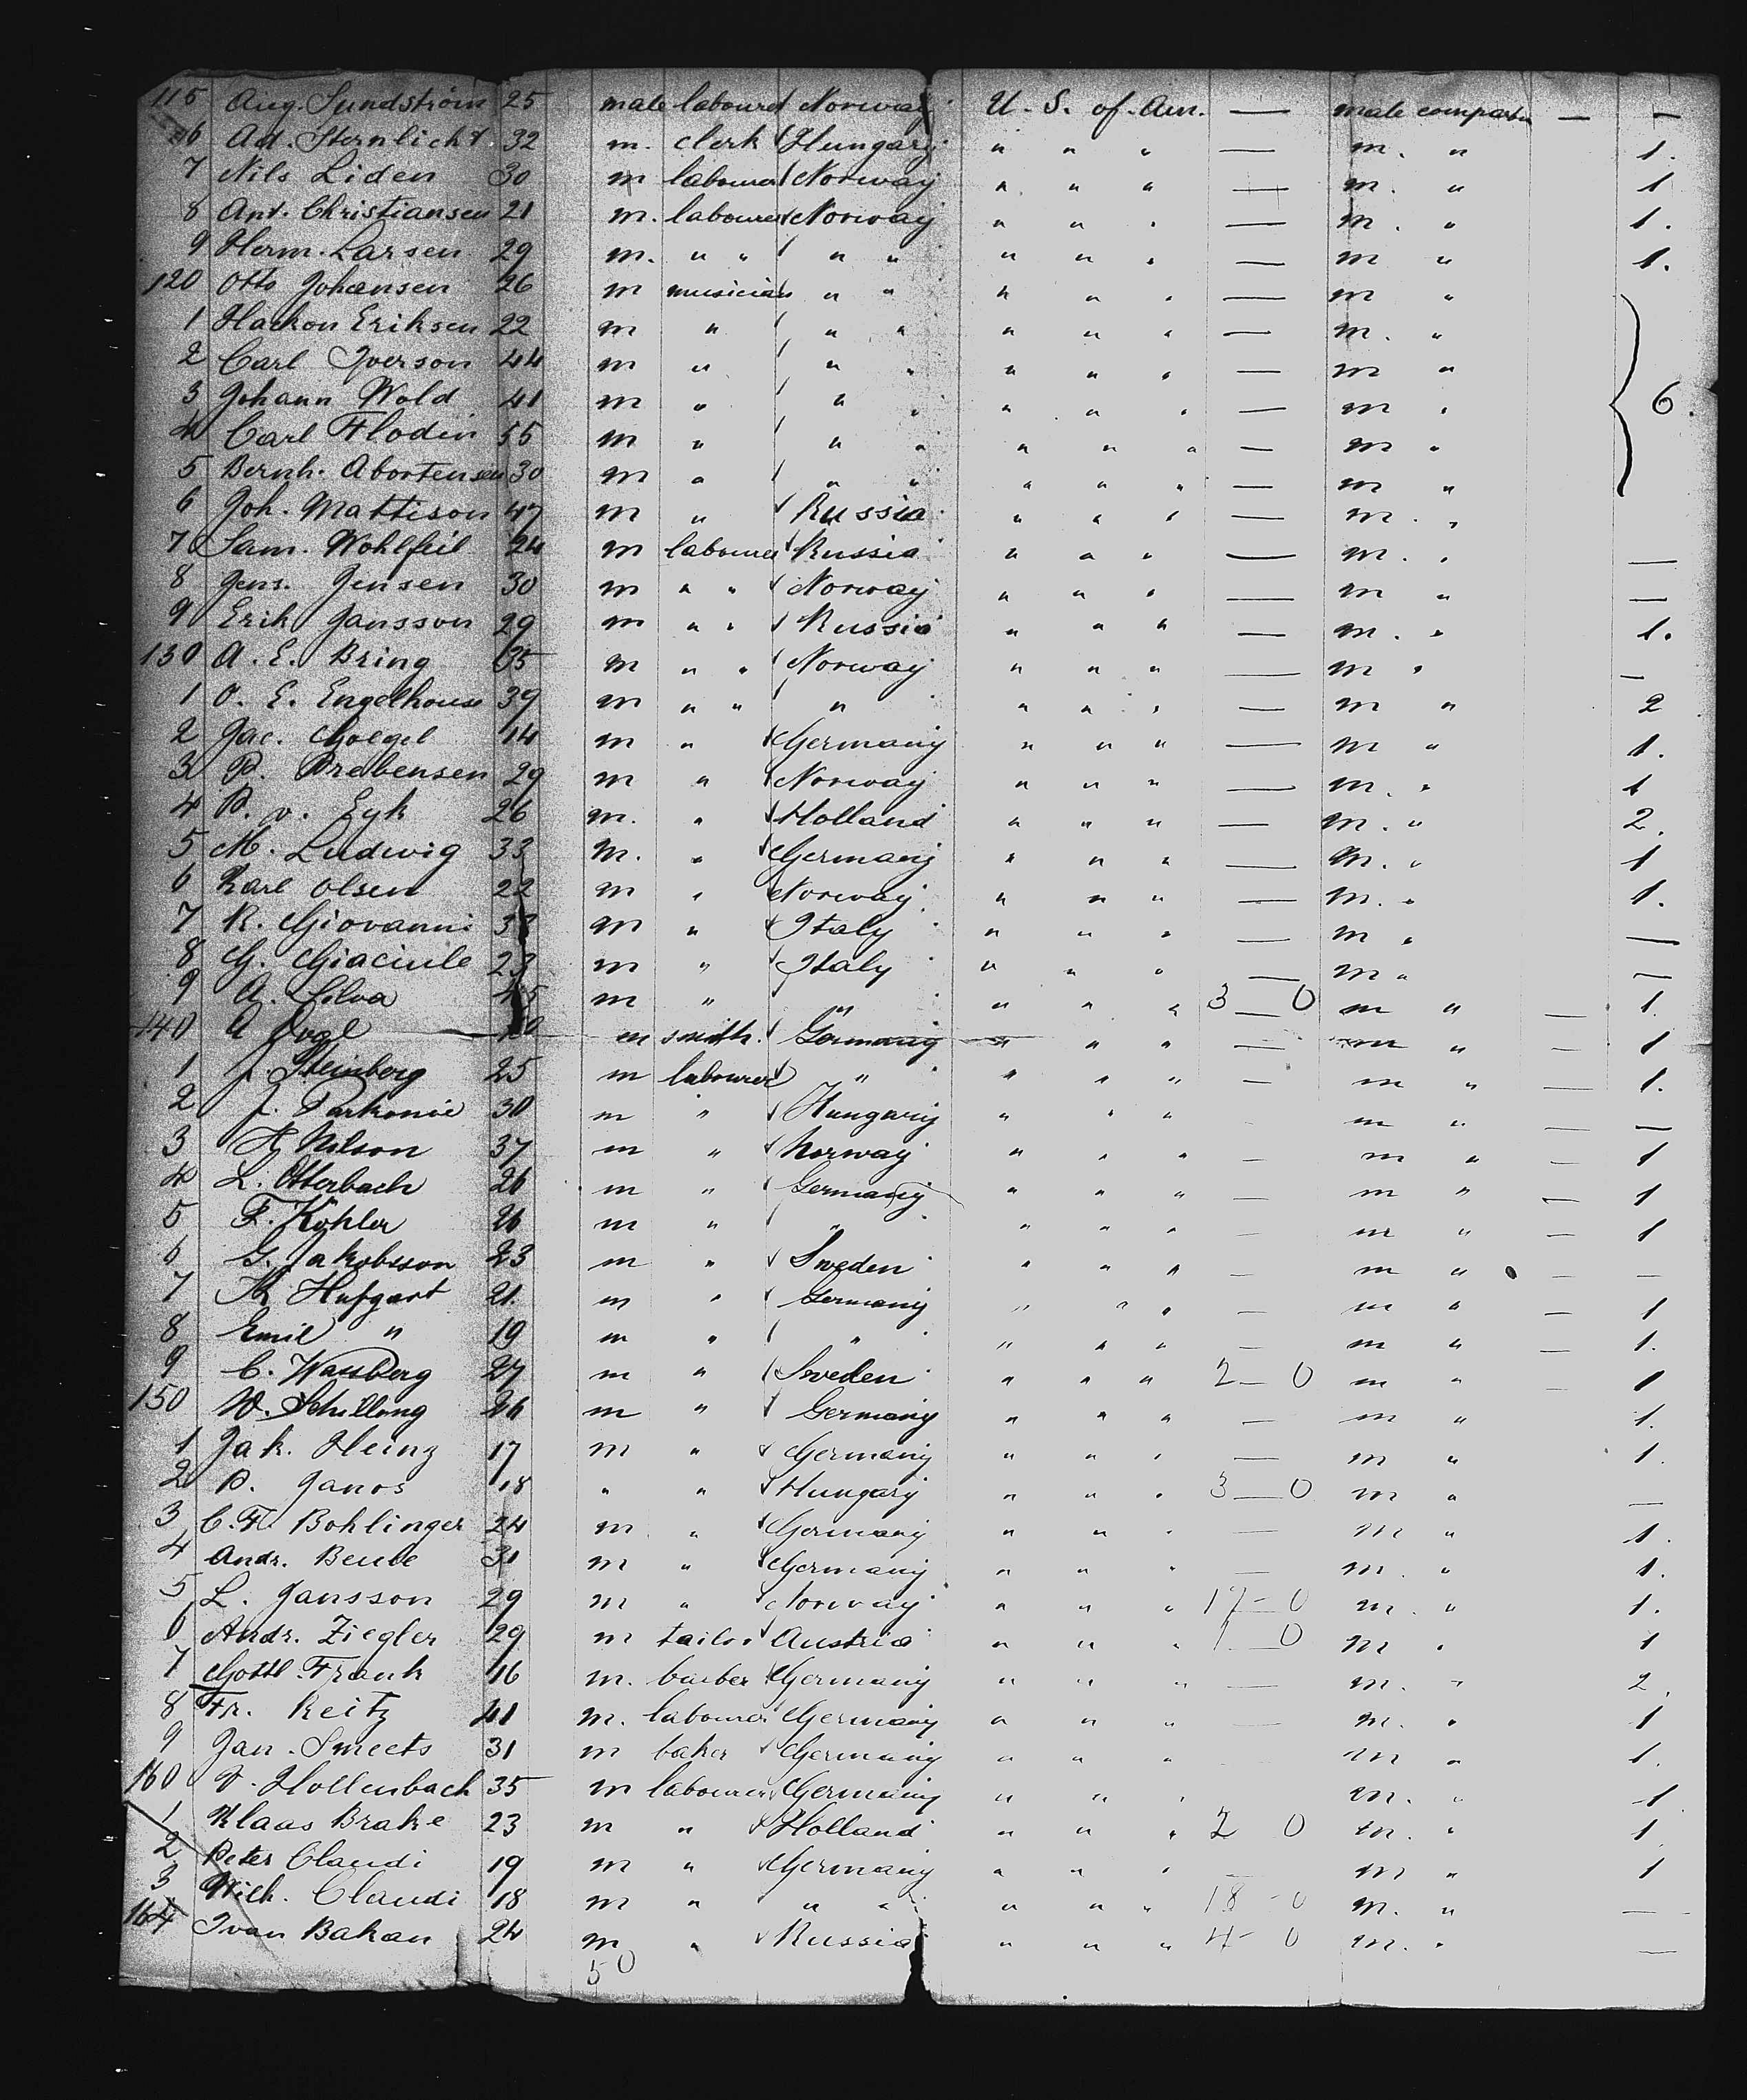 115 Aug. Sundström 25 male labourer Norway U. S. of. Am. — male compart. — —
6 Ad. Sternlicht. 32 m. clerk Hungary " " " — m. " 1.
7 Nils Liden 30 m labourer Norway " " " — m. " 1
8 Ant. Christiansen 21 m. labourer Norway " " " — m. " 1.
9 Herm. Larsen 29 m. " " " " " " " — m " 1.
120 Otto Johansen 26 m musician " " " " " — m "
1 Haakon Eriksen 22 m " " " " " " — m. "
2 Carl Iverson 44 m " " " " " " — m "
3 Johann Wold 41 m " " " " " " — m " 6.
4 Carl Flodin 55 m " " " " " " — m "
5 Bernh. Abortensen 30 m " " " " " " — m "
6 Joh. Mattison 47 m " Russia " " " — m. "
7 Sam. Wohlfeil 24 m labourer Russia " " " — m. " —
8 Jens. Jensen 30 m " " Norway " " " — m " —
9 Erik Jansson 29 m " " Russia " " " — m. " 1.
130 A. E. Bring 35 m " " Norway " " " — m " —
1 O. E. Engelhouse 39 m " " " " " " — m " 2
2 Jac. Goegel 14 m " Germany " " " — m " 1.
3 P. Brebensen 29 m " Norway " " " — m. " 1
4 P. v. Eyk 26 m. " Holland " " " — m. " 2.
5 M. Ludwig 33 m. " Germany " " " — m. " 1
6 Karl Olsen 22 m " Norway " " " — m. " 1.
7 R. Giovanni m " Italy " " " — m " —
8 G. Giaciule 23 m " Italy " " " — m " —
9 A. Silva m " " " " " 3—0 m " — 1.
140 A m smith. Germany " " " — m " — 1
1 J. Steinberg 25 m labourer " " " " — m " — 1.
2 J. Parkonie 30 m " Hungary " " " m " — —
3 A Nilson 37 m " Norway " " " — m " — 1
4 L. Otterbach 26 m " Germany " " " — m " — 1
5 F. Köhler 26 m " " " " " — m " — 1
6 G. Jakobsson 23 m " Sweden " " " — m " — —
7 Hufgart 21. m " Germany " " " — m " — 1
8 Emil " 19 m " " " " " — m " — 1.
9 C. Wassberg 27 m " Sweden " " " 2—0 m " — 1
150 W. Schilling 26 m " Germany " " " — m " 1.
1 Jak. Heinz 17 m " Germany " " " — m " 1.
2 P. Janos 18 " " Hungary " " " 3—0 m " —
3 C. F. Bohlinger 24 m " Germany " " " — m " 1.
4 Andr. Beule 31 m " Germany " " " — m. " 1.
5 L. Jansson 29 m " Norway " " " 17—0 m. " 1.
6 Andr. Ziegler 29 m tailor Austria " " " 1—0 m " 1
7 Gottl. Frank 16 m. barber Germany " " " — m. " 2.
8 Fr. Reitz 41 m. labourer Germany " " " — m. " 1
9 Jan. Smeets 31 m baker Germany " " " m " 1.
160 V. Hollenbach 35 m labourer Germany " " " m. " 1
1 Klaas Brake 23 m " Holland " " " 2 0 m. " 1
2 Peter Claudi 19 m " Germany " " " — m " 1
3 Wilh. Claudi 18 m " " " " " " 18—0 m. " —
164 Ivan Bakan 24 m " Russia " " " 4—0 m. " —
50